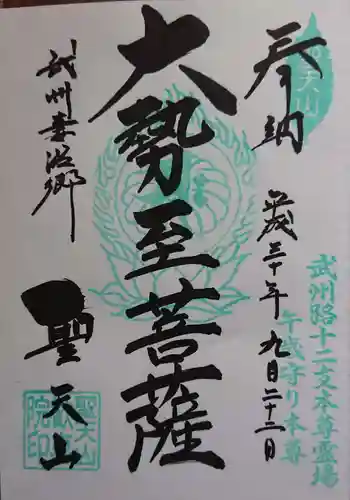 奉納
聖天山
武州路十二支本尊霊場
午歳守り本尊
平成三十年九月二十二日
大勢至菩薩
武州妻沼郷
聖天山